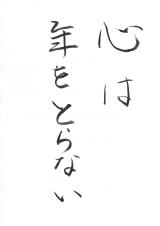 心は
年をとらない